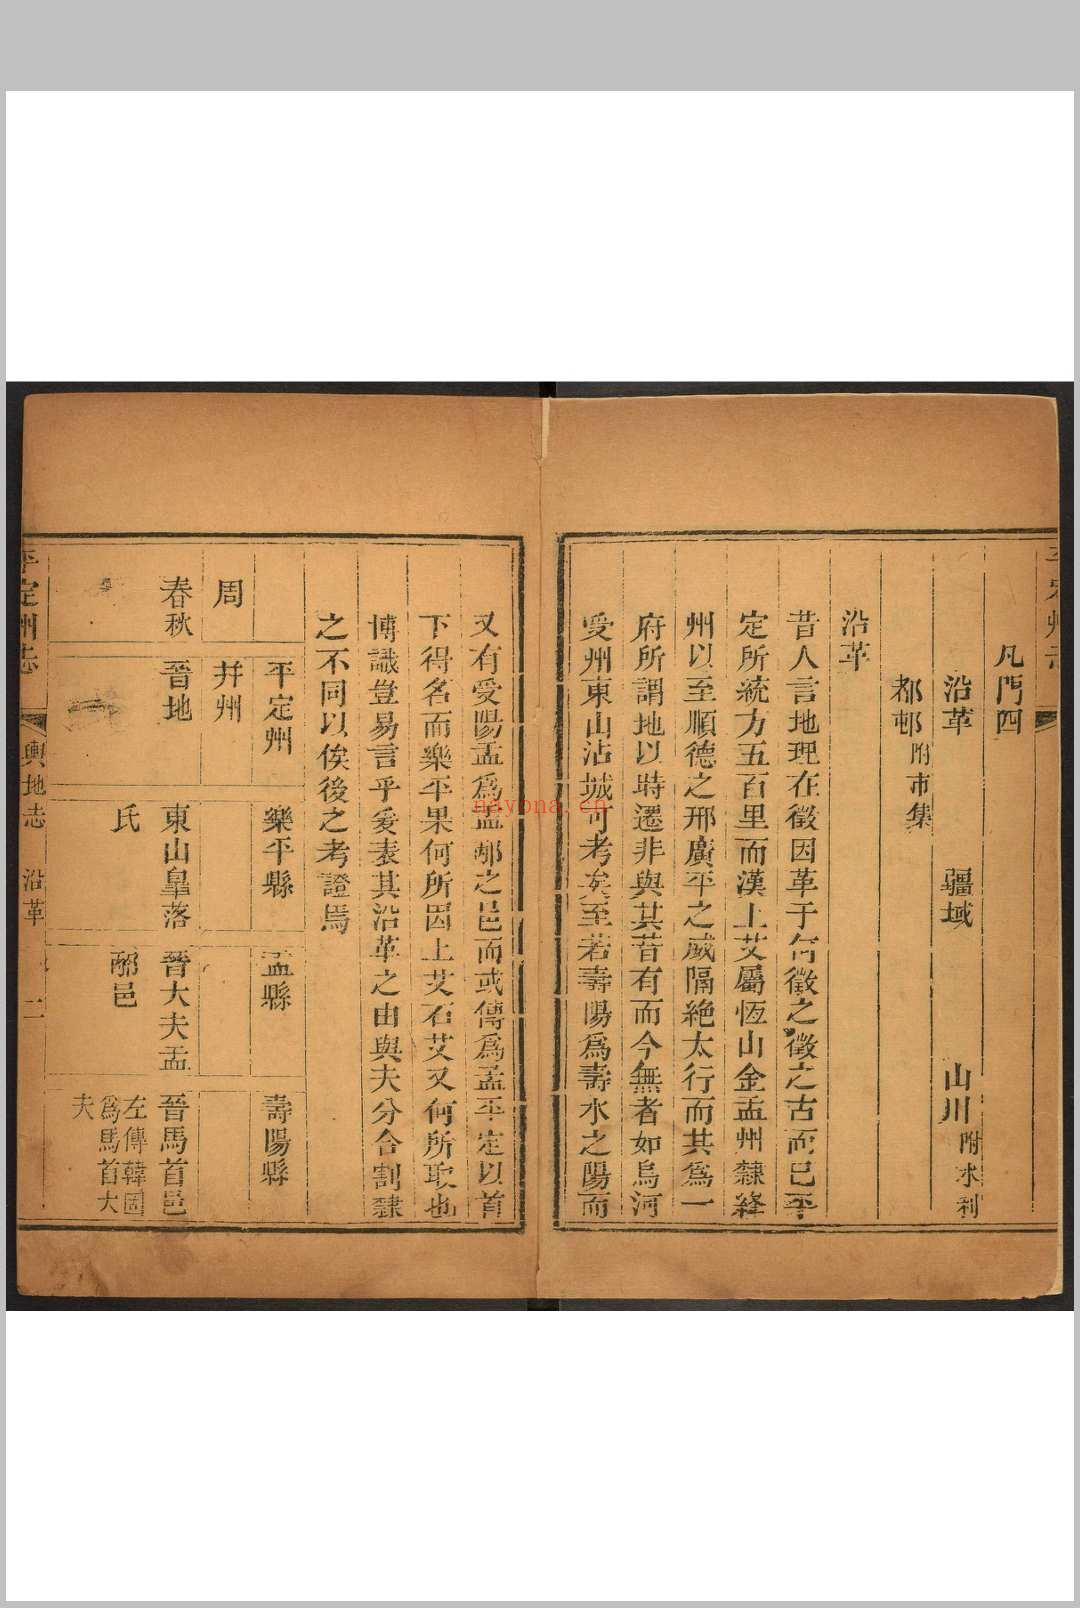 凡門四
沿革 疆域 山川 附水利
都邨 附市集
沿革
昔人言地理在徵因革于何徵之徵之古而已平
定所統方五百里而漢上艾屬恆山金盂州隸絳
州以至順德之邢廣平之威隔絶太行而其爲一
府所謂地以時遷非與其昔有而今無者如烏河
受州東山沾城可考矣至若壽陽爲壽水之陽而
又有受陽盂爲盂邴之邑而或傳爲孟平定以首
下得名而樂平果何所因上艾石艾又何所取也
博識豈易言乎爰表其沿革之由與夫分合割隸
之不同以俟後之考證焉
平定州 樂平縣 盂縣 壽陽縣
周 并州
春秋 晉地 東山臯落 晉大夫盂 晉馬首邑
氏 邴邑 左傳韓固
爲馬首大
夫
平定州志 輿地志 沿革 二
nayona.cn